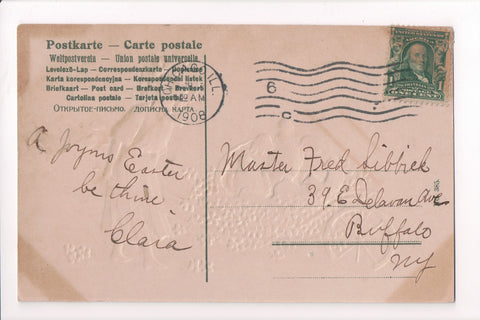 Postkarte — Carte postale
Weltpostverein — Union postale universelle
Levelező-Lap — Correspondenzkarte — Dopisnice
Karta korespondencyjna — Korespondenční lístek
Briefkaart — Post card — Brefkort — Brevkort
Cartolina postale — Tarjeta postal
Открытое-письмо. Дописна карта.
ILL.
AM
1908
6
C
1
A Joyous Easter
be thine
Clara
Master Fred Sibbick
39 E Delavan Ave
Buffalo
NY